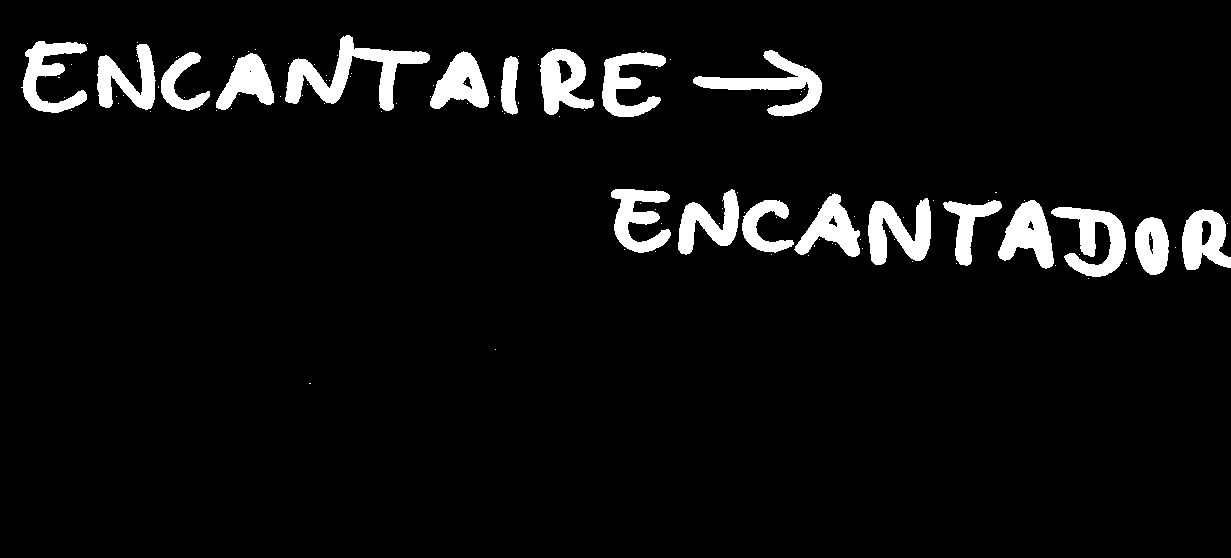 ENCANTAIRE →
ENCANTADOR